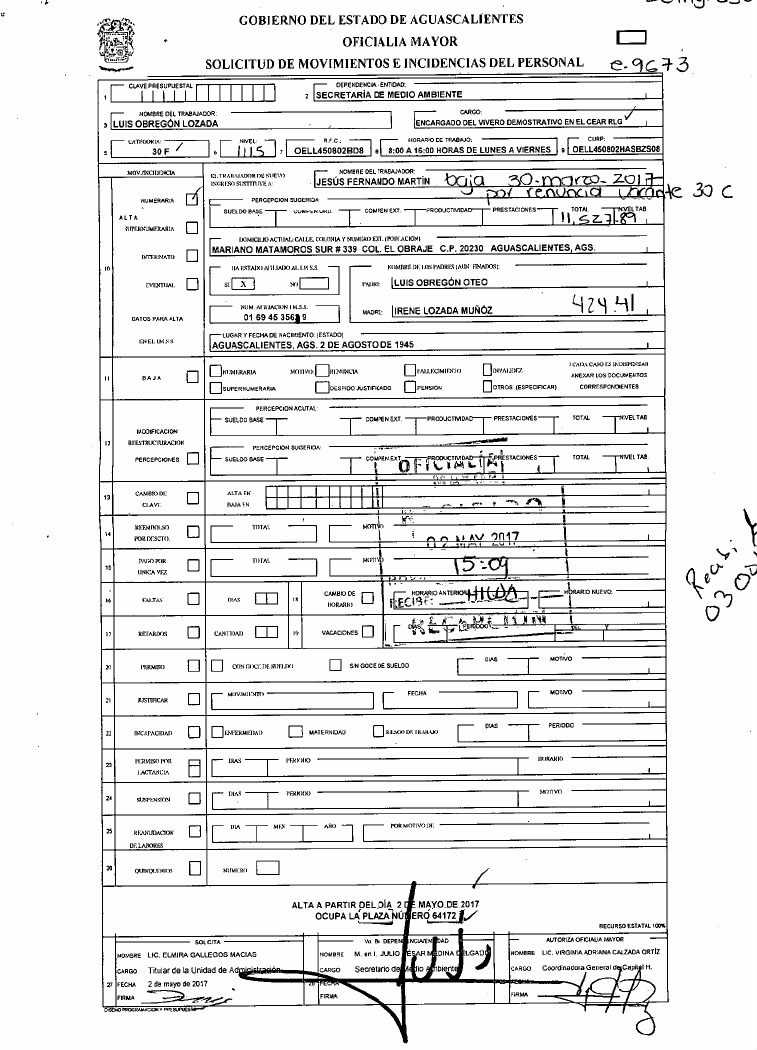 GOBIERNO DEL ESTADO DE AGUASCALIENTES
OFICIALIA MAYOR
SOLICITUD DE MOVIMIENTOS E INCIDENCIAS DEL PERSONAL
e-9673
1 CLAVE PRESUPUESTAL
2 DEPENDENCIA - ENTIDAD:
SECRETARÍA DE MEDIO AMBIENTE
NOMBRE DEL TRABAJADOR:
CARGO:
3 LUIS OBREGÓN LOZADA
ENCARGADO DEL VIVERO DEMOSTRATIVO EN EL CEAR RLG
CATEGORIA: NIVEL: R.F.C.: HORARIO DE TRABAJO: CURP:
5 30 F 6 1115 7 OELL450802BD8 8 8:00 A 16:00 HORAS DE LUNES A VIERNES 9 OELL450802HASBZS08
MOV./INCIDENCIA
EL TRABAJADOR DE NUEVO INGRESO SUSTITUYE A:
NOMBRE DEL TRABAJADOR:
JESÚS FERNANDO MARTÍN baja 30-marzo-2017
y por renuncia vacante 30 C
NUMERARIA
PERCEPCION SUGERIDA
SUELDO BASE COMPEN EXT. PRODUCTIVIDAD PRESTACIONES TOTAL NIVEL TAB
11,527.89
ALTA
SUPERNUMERARIA
DOMICILIO ACTUAL: CALLE, COLONIA Y NUMERO EXT. (POBLACION)
MARIANO MATAMOROS SUR # 339 COL. EL OBRAJE C.P. 20230 AGUASCALIENTES, AGS.
INTERINATO
HA ESTADO AFILIADO AL I.M.S.S.
NOMBRE DE LOS PADRES (AUN FINADOS):
10
EVENTUAL
SI X NO
PADRE: LUIS OBREGÓN OTEO
NUM. AFILIACION I.M.S.S.
DATOS PARA ALTA
01 69 45 3563 9
MADRE: IRENE LOZADA MUÑÓZ
424.41
EN EL I.M.S.S.
LUGAR Y FECHA DE NACIMIENTO: (ESTADO)
AGUASCALIENTES, AGS. 2 DE AGOSTO DE 1945
11 BAJA
NUMERARIA MOTIVO: RENUNCIA FALLECIMIENTO INVALIDEZ
SUPERNUMERARIA DESPIDO JUSTIFICADO PENSION OTROS (ESPECIFICAR)
CADA CASO ES INDISPENSAR
ANEXAR LOS DOCUMENTOS
CORRESPONDIENTES
PERCEPCION ACUTAL:
SUELDO BASE COMPEN EXT. PRODUCTIVIDAD PRESTACIONES TOTAL NIVEL TAB
MODIFICACION
12 REESTRUCTURACION
PERCEPCIONES
PERCEPCION SUGERIDA:
SUELDO BASE COMPEN EXT. PRODUCTIVIDAD PRESTACIONES TOTAL NIVEL TAB
OFICIALIA
13 CAMBIO DE CLAVE
ALTA EN
BAJA EN
14 REEMBOLSO POR DESCTO.
TOTAL MOTIVO
02 MAY 2017
15 PAGO POR UNICA VEZ
TOTAL MOTIVO
15:09
16 FALTAS DIAS 18 CAMBIO DE HORARIO HORARIO ANTERIOR HORARIO NUEVO:
HILDA
RECIBE:
17 RETARDOS CANTIDAD 19 VACACIONES DIAS PERIODO DEL Y
20 PERMISO CON GOCE DE SUELDO SIN GOCE DE SUELDO DIAS MOTIVO
21 JUSTIFICAR MOVIMIENTO FECHA MOTIVO
22 INCAPACIDAD ENFERMEDAD MATERNIDAD RIESGO DE TRABAJO DIAS PERIODO
23 PERMISO POR LACTANCIA DIAS PERIODO HORARIO
24 SUSPENSIÓN DIAS PERIODO MOTIVO
25 REANUDACION DE LABORES DIA MES AÑO POR MOTIVO DE
26 QUINQUENIOS NUMERO
ALTA A PARTIR DEL DÍA 2 DE MAYO DE 2017
OCUPA LA PLAZA NÚMERO 64172
RECURSO ESTATAL 100%
SOLICITA
NOMBRE LIC. ELMIRA GALLEGOS MACIAS
CARGO Titular de la Unidad de Administración
27 FECHA 2 de mayo de 2017
FIRMA
Vo. Bo. DEPENDENCIA/ENTIDAD
NOMBRE M. en I. JULIO CÉSAR MEDINA DELGADO
CARGO Secretario de Medio Ambiente
28 FECHA
FIRMA
AUTORIZA OFICIALIA MAYOR
NOMBRE LIC. VIRGINIA ADRIANA CALZADA ORTÍZ
CARGO Coordinadora General de Capital H.
FIRMA
DISEÑO PROGRAMACION Y PRESUPUESTO